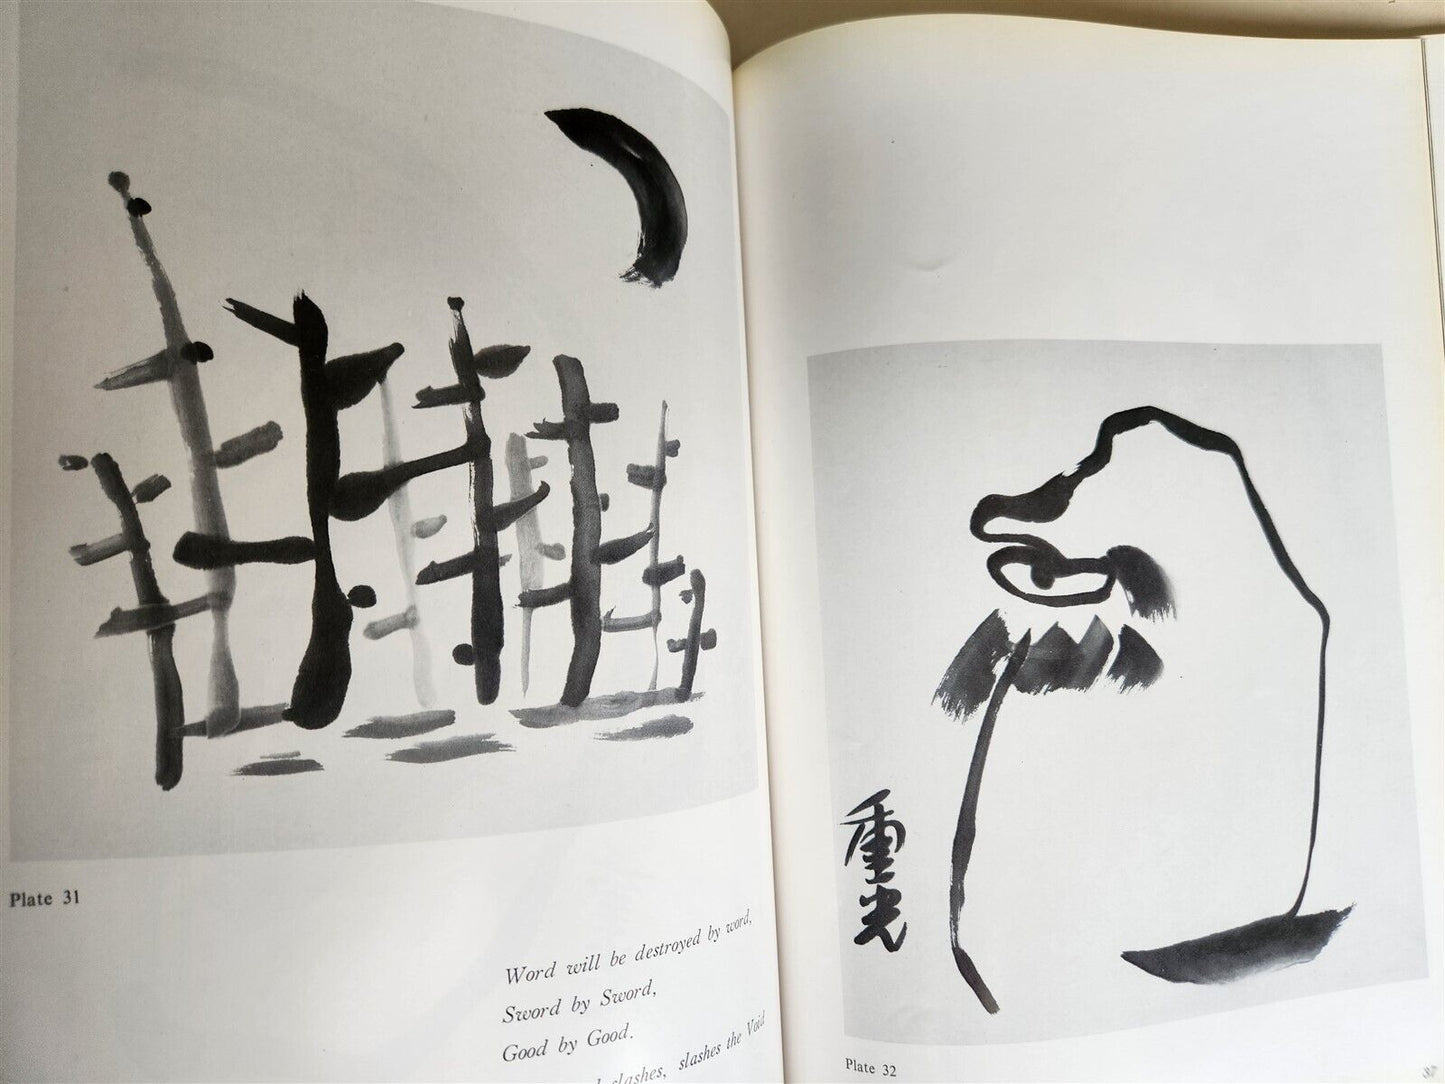 Plate 31
Word will be destroyed by word,
Sword by Sword,
Good by Good.
slashes, slashes the Void
重光
Plate 32
37